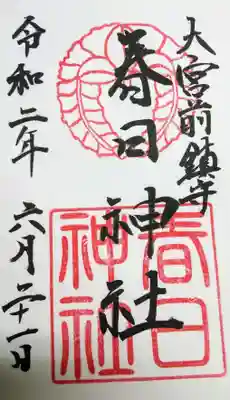 大宮前鎮守
春日神社
令和二年 六月二十一日
春日
神社